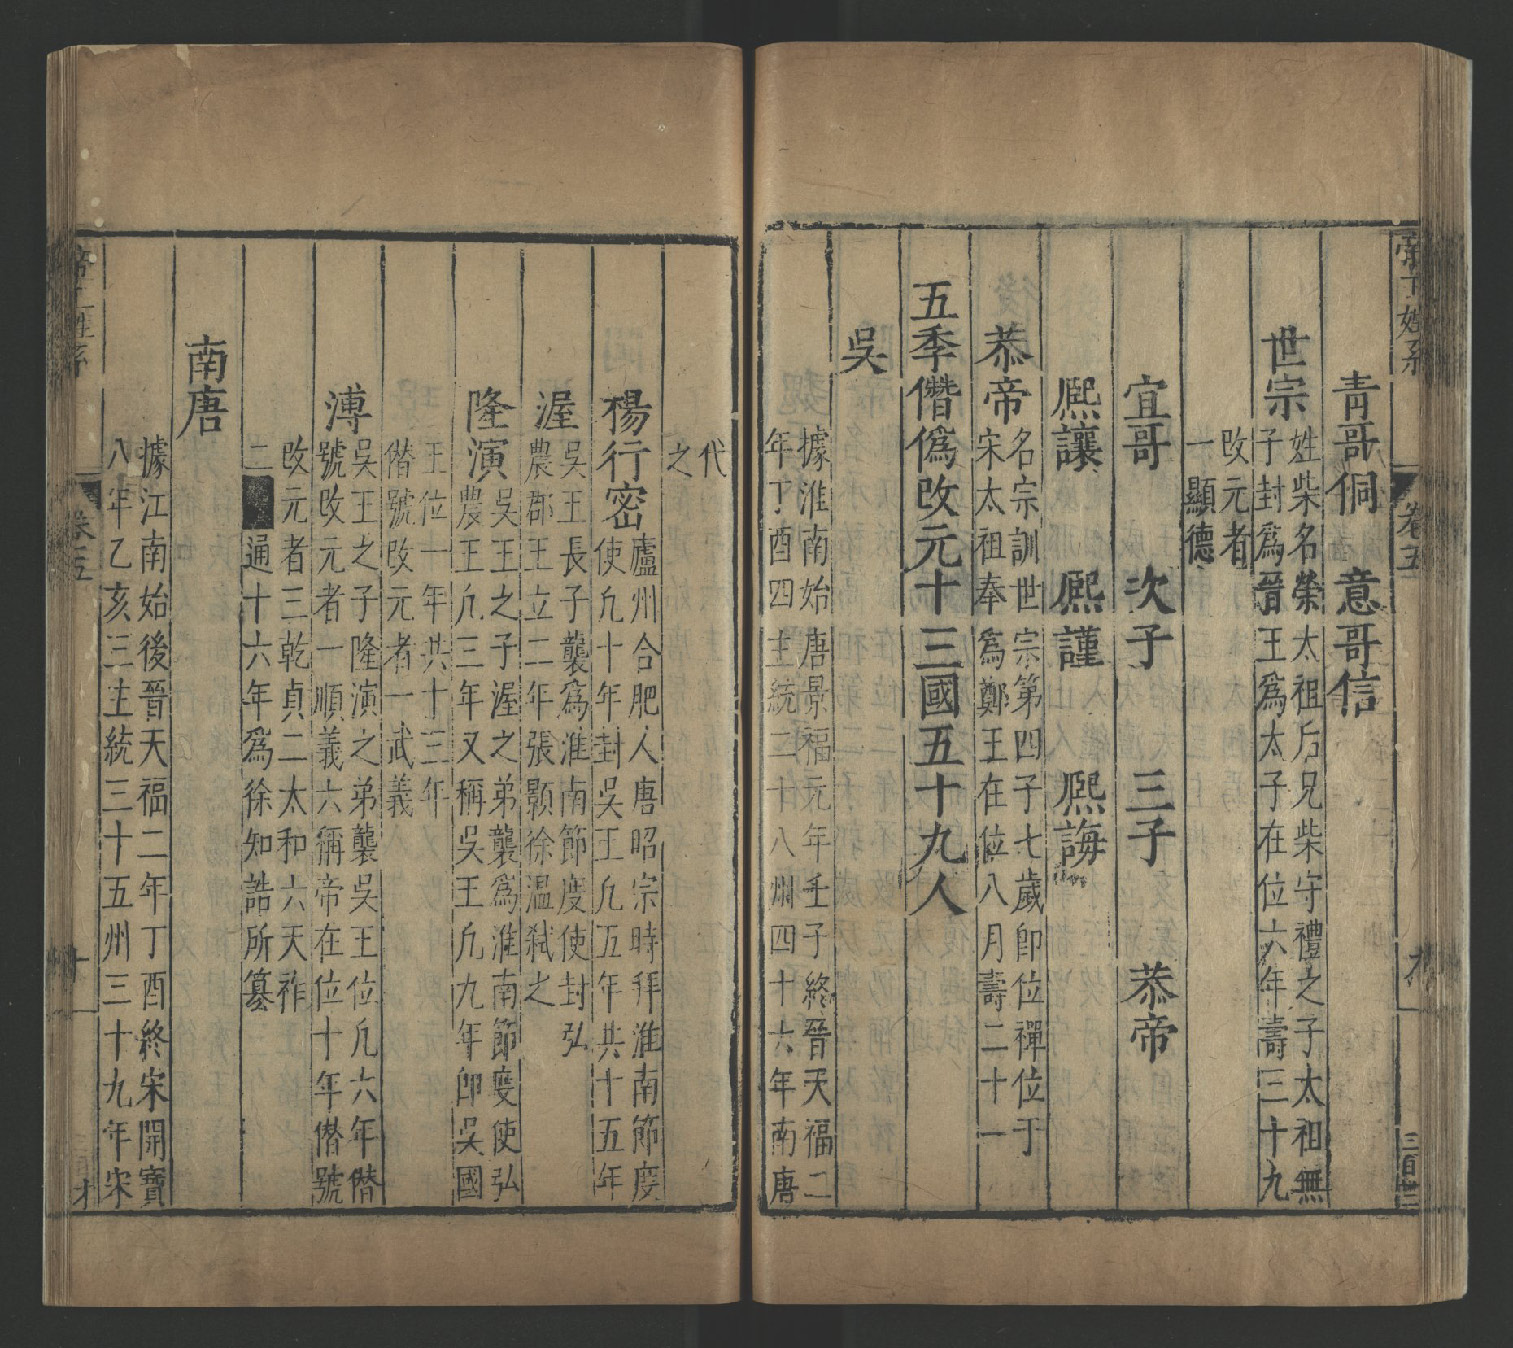 帝王姓系 卷五 九
青哥侗 意哥信
世宗
姓柴名榮太祖后兄柴守禮之子太祖無
子封爲晉王爲太子在位六年壽三十九
改元者
一顯德
宜哥 次子 三子 恭帝
熈讓 熈謹 熈誨
恭帝
名宗訓世宗第四子七歲卽位禪位于
宋太祖奉爲鄭王在位八月壽二十一
五季僭僞改元十三國五十九人
吳
據淮南始唐景福元年壬子終晉天福二
年丁酉四主統二十八州四十六年南唐
代
之
楊行密
廬州合肥人唐昭宗時拜淮南節度
使凢十年封吳王凢五年共十五年
渥
吳王長子襲爲淮南節度使封弘
農郡王立二年張顥徐溫弑之
隆演
吳王之子渥之弟襲爲淮南節度使弘
農王凢三年又稱吳王凢九年卽吳國
王位十年共十三年
僭號改元者一武義
溥
吳王之子隆演之弟襲吳王位凢六年僭
號改元者一順義六稱帝在位十年僭號
改元者三乾貞二太和六天祚
二通十六年爲徐知誥所簒
南唐
據江南始後晉天福二年丁酉終宋開寶
八年乙亥三主統三十五州三十九年宋
帝王姓系 卷五 十